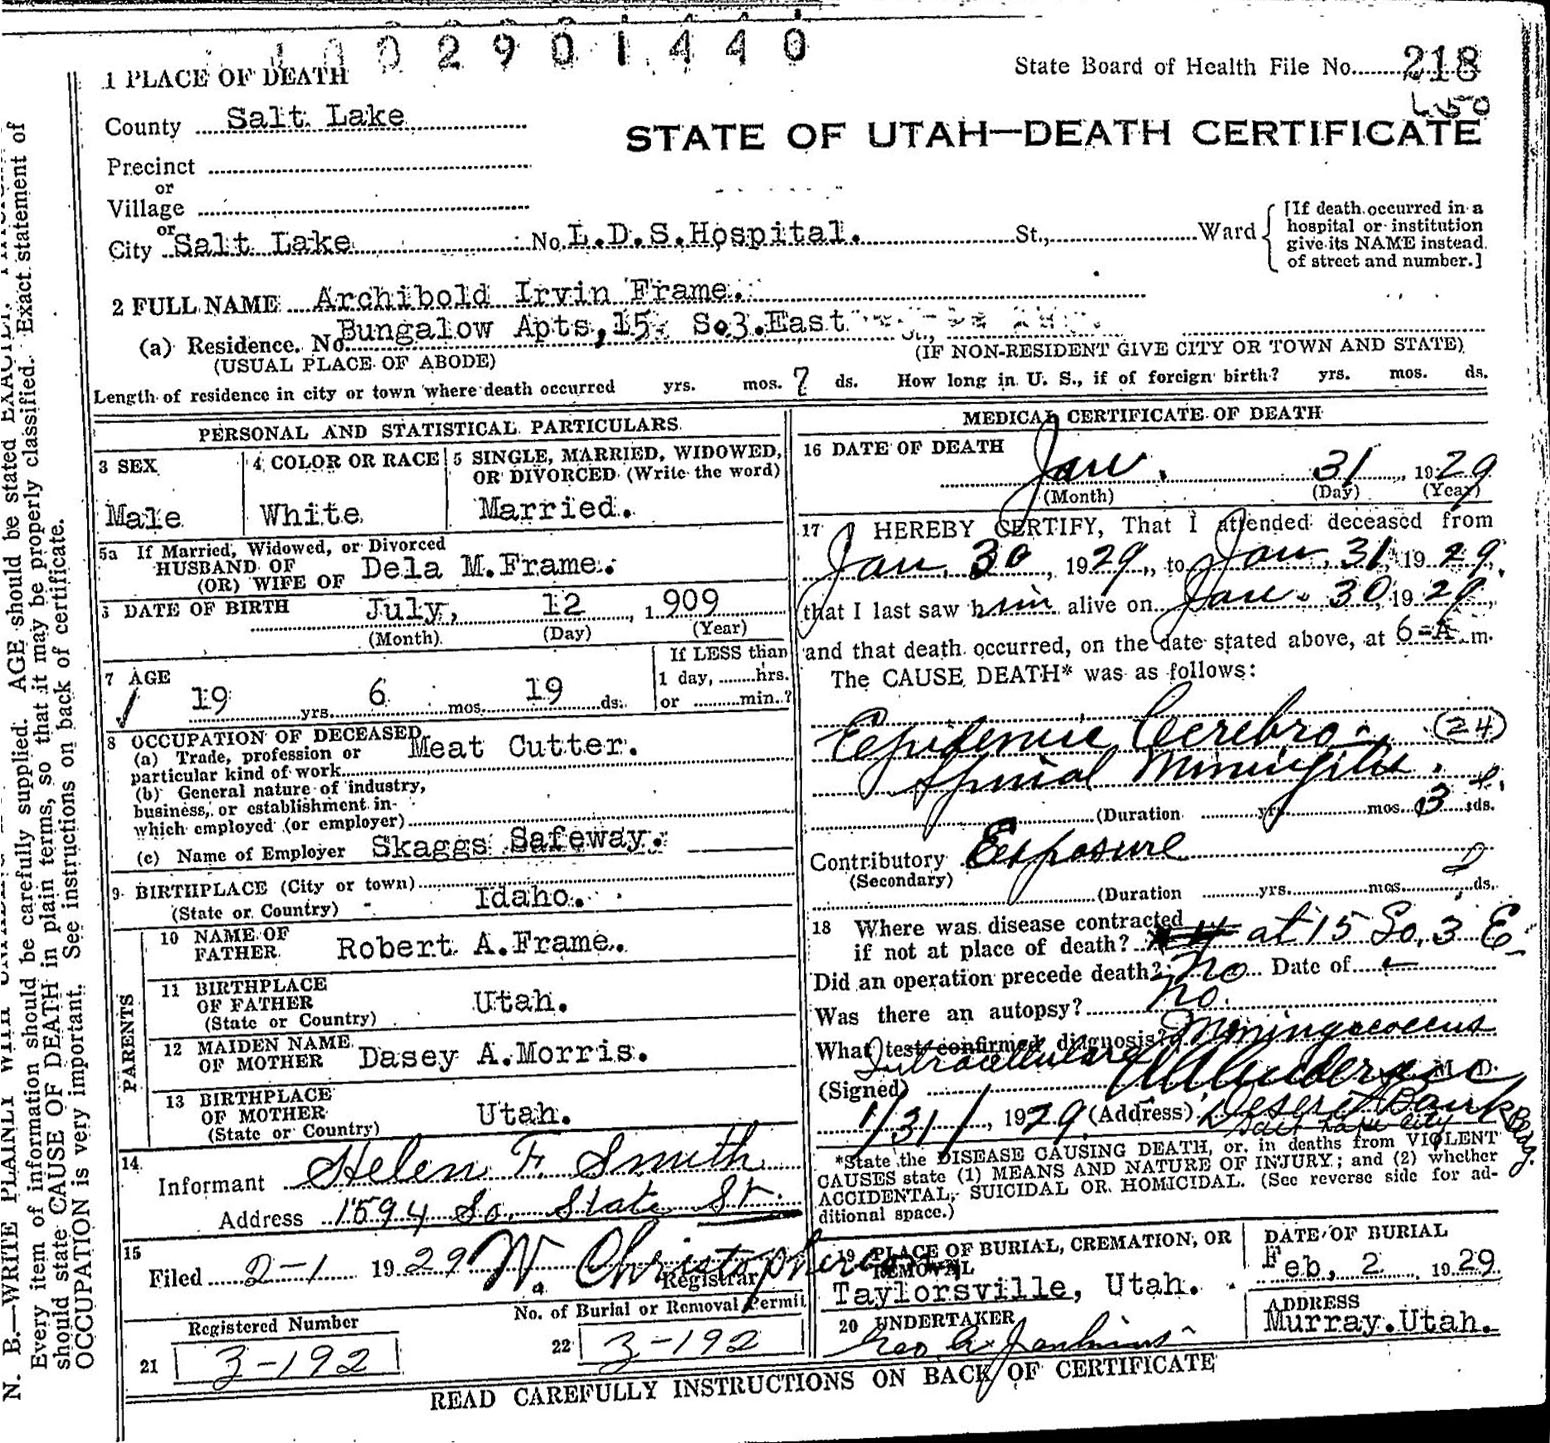 1002901440
1 PLACE OF DEATH
State Board of Health File No. 218
County Salt Lake
STATE OF UTAH—DEATH CERTIFICATE
Precinct
or
Village
or
City Salt Lake No. L.D.S.Hospital. St., Ward
[If death occurred in a
hospital or institution
give its NAME instead
of street and number.]
2 FULL NAME Archibold Irvin Frame.
(a) Residence. No. Bungalow Apts, 15 So3.East St.,
(USUAL PLACE OF ABODE) (IF NON-RESIDENT GIVE CITY OR TOWN AND STATE)
Length of residence in city or town where death occurred yrs. mos. 7 ds. How long in U. S., if of foreign birth? yrs. mos. ds.
PERSONAL AND STATISTICAL PARTICULARS
3 SEX
Male
4 COLOR OR RACE
White
5 SINGLE, MARRIED, WIDOWED,
OR DIVORCED (Write the word)
Married.
5a If Married, Widowed, or Divorced
HUSBAND OF
(OR) WIFE OF Dela M.Frame.
6 DATE OF BIRTH July, 12, 1909
(Month) (Day) (Year)
7 AGE
19 yrs. 6 mos. 19 ds.
If LESS than
1 day, ........hrs.
or ..........min.?
8 OCCUPATION OF DECEASED
(a) Trade, profession or
particular kind of work Meat Cutter.
(b) General nature of industry,
business, or establishment in-
which employed (or employer)
(c) Name of Employer Skaggs Safeway.
9 BIRTHPLACE (City or town)
(State or Country) Idaho.
PARENTS
10 NAME OF
FATHER Robert A.Frame.
11 BIRTHPLACE
OF FATHER
(State or Country) Utah.
12 MAIDEN NAME
OF MOTHER Dasey A.Morris.
13 BIRTHPLACE
OF MOTHER
(State or Country) Utah.
14
Informant Helen F. Smith
Address 1594 So. State St.
15
Filed 2-1 1929 W. Christopherson
Registrar
Registered Number
21 3-192
No. of Burial or Removal Permit
22 3-192
MEDICAL CERTIFICATE OF DEATH
16 DATE OF DEATH
Jan. 31, 1929
(Month) (Day) (Year)
17 I HEREBY CERTIFY, That I attended deceased from
Jan. 30, 1929, to Jan, 31, 1929,
that I last saw him alive on Jan. 30, 1929,
and that death occurred, on the date stated above, at 6-A m.
The CAUSE DEATH* was as follows:
Epidemic Cerebro- (24)
Spinal Miningitis.
(Duration yrs. mos. 3 ds.
Contributory Exposure
(Secondary)
(Duration yrs. mos. ds.
18 Where was disease contracted
if not at place of death? at 15 So. 3 E
Did an operation precede death? No Date of
Was there an autopsy? No.
What test confirmed diagnosis? Miningococcus
Intracellulare
(Signed) M. D.
1/31/, 1929 (Address) Deseret Bank Bldg.
Salt Lake City
*State the DISEASE CAUSING DEATH, or, in deaths from VIOLENT
CAUSES state (1) MEANS AND NATURE OF INJURY; and (2) whether
ACCIDENTAL, SUICIDAL OR HOMICIDAL. (See reverse side for ad-
ditional space.)
19 PLACE OF BURIAL, CREMATION, OR
REMOVAL
Taylorsville, Utah.
DATE OF BURIAL
Feb, 2, 1929
20 UNDERTAKER
Geo A Jenkins
ADDRESS
Murray.Utah.
READ CAREFULLY INSTRUCTIONS ON BACK OF CERTIFICATE
N. B.—WRITE PLAINLY WITH
Every item of information should be carefully supplied. AGE should be stated EXACTLY.
should state CAUSE OF DEATH in plain terms, so that it may be properly classified. Exact statement of
OCCUPATION is very important. See instructions on back of certificate.